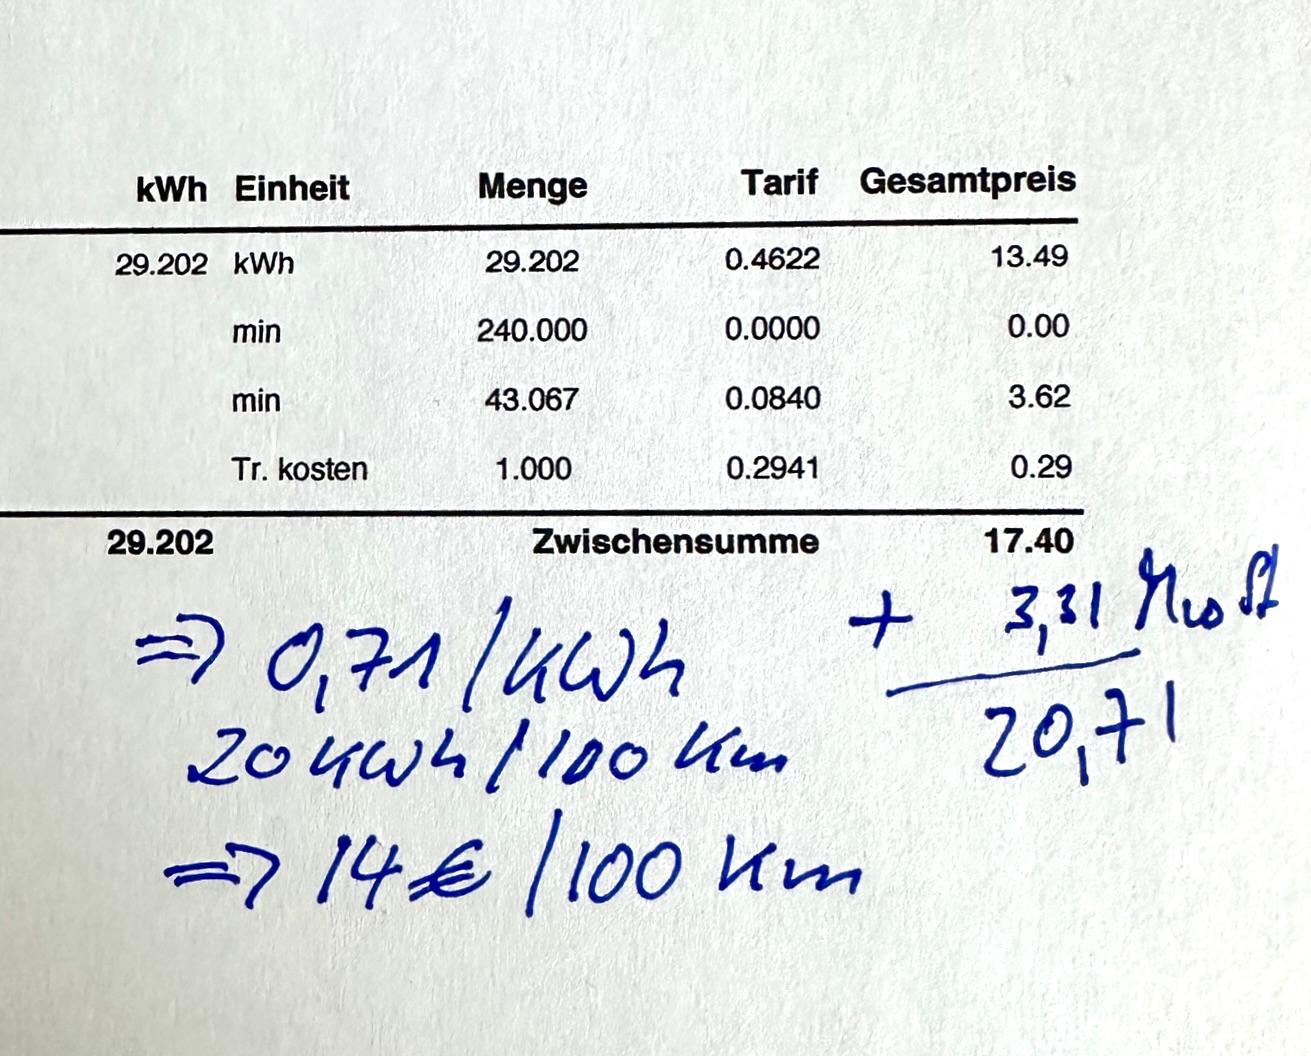 kWh Einheit Menge Tarif Gesamtpreis
29.202 kWh 29.202 0.4622 13.49
min 240.000 0.0000 0.00
min 43.067 0.0840 3.62
Tr. kosten 1.000 0.2941 0.29
29.202 Zwischensumme 17.40
+ 3,31 MwSt
⇒ 0,71/kWh
20,71
20 kWh/100 km
⇒ 14 € /100 km